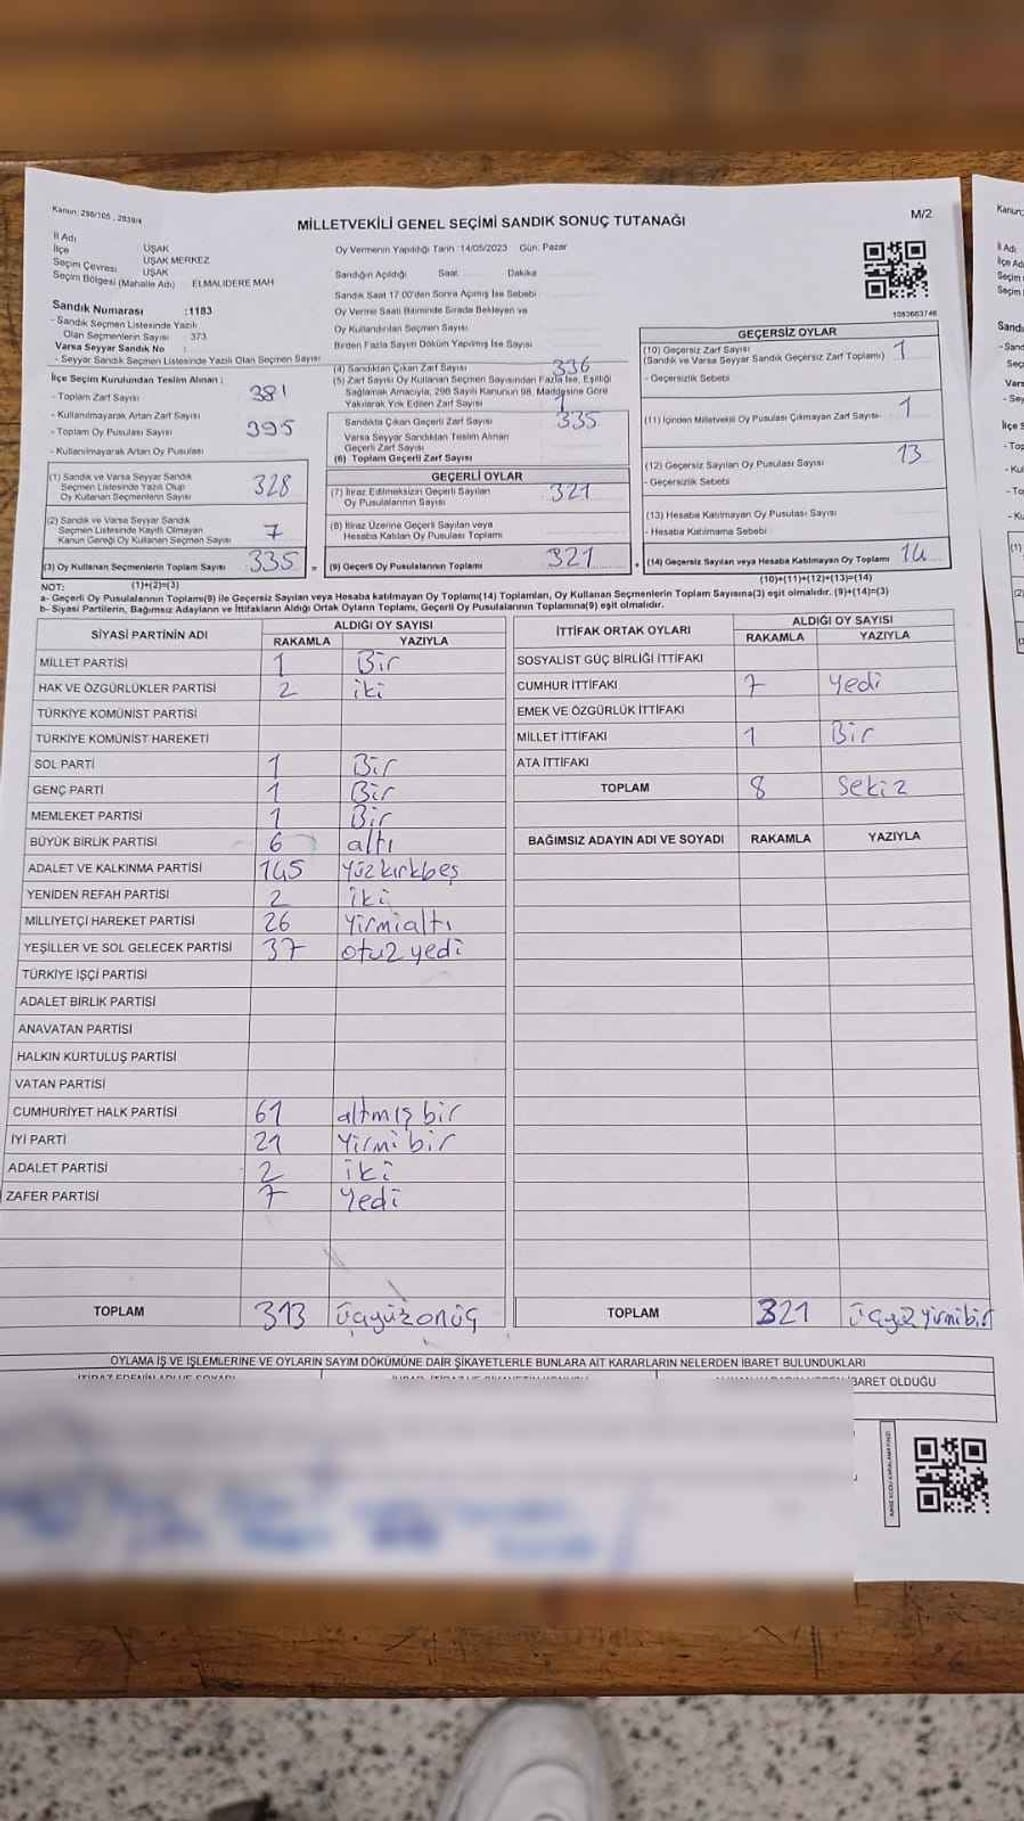 Kanun: 298/105 , 2839/4
MİLLETVEKİLİ GENEL SEÇİMİ SANDIK SONUÇ TUTANAĞI
M/2
İl Adı UŞAK
İlçe UŞAK MERKEZ
Seçim Çevresi UŞAK
Seçim Bölgesi (Mahalle Adı) ELMALIDERE MAH
Sandık Numarası :1183
- Sandık Seçmen Listesinde Yazılı
Olan Seçmenlerin Sayısı 373
Varsa Seyyar Sandık No :
- Seyyar Sandık Seçmen Listesinde Yazılı Olan Seçmen Sayısı
Oy Vermenin Yapıldığı Tarih :14/05/2023 Gün: Pazar
Sandığın Açıldığı Saat Dakika
Sandık Saat 17:00'den Sonra Açılmış İse Sebebi
Oy Verme Saati Bitiminde Sırada Bekleyen ve
Oy Kullandırılan Seçmen Sayısı
Birden Fazla Sayım Döküm Yapılmış İse Sayısı
1083663746
İlçe Seçim Kurulundan Teslim Alınan :
- Toplam Zarf Sayısı 381
- Kullanılmayarak Artan Zarf Sayısı
- Toplam Oy Pusulası Sayısı 395
- Kullanılmayarak Artan Oy Pusulası
(1) Sandık ve Varsa Seyyar Sandık
Seçmen Listesinde Yazılı Olup
Oy Kullanan Seçmenlerin Sayısı 328
(2) Sandık ve Varsa Seyyar Sandık
Seçmen Listesinde Kayıtlı Olmayan
Kanun Gereği Oy Kullanan Seçmen Sayısı 7
(3) Oy Kullanan Seçmenlerin Toplam Sayısı 335 =
(1)+(2)=(3)
(4) Sandıktan Çıkan Zarf Sayısı 336
(5) Zarf Sayısı Oy Kullanan Seçmen Sayısından Fazla İse, Eşitliği
Sağlamak Amacıyla, 298 Sayılı Kanunun 98. Maddesine Göre
Yakılarak Yok Edilen Zarf Sayısı 1
Sandıkta Çıkan Geçerli Zarf Sayısı 335
Varsa Seyyar Sandıktan Teslim Alınan
Geçerli Zarf Sayısı
(6) Toplam Geçerli Zarf Sayısı
GEÇERLİ OYLAR
(7) İtiraz Edilmeksizin Geçerli Sayılan
Oy Pusulalarının Sayısı 321
(8) İtiraz Üzerine Geçerli Sayılan veya
Hesaba Katılan Oy Pusulası Toplamı
(9) Geçerli Oy Pusulalarının Toplamı 321 +
GEÇERSİZ OYLAR
(10) Geçersiz Zarf Sayısı
(Sandık ve Varsa Seyyar Sandık Geçersiz Zarf Toplamı) 1
- Geçersizlik Sebebi
(11) İçinden Milletvekili Oy Pusulası Çıkmayan Zarf Sayısı 1
(12) Geçersiz Sayılan Oy Pusulası Sayısı 13
- Geçersizlik Sebebi
(13) Hesaba Katılmayan Oy Pusulası Sayısı
- Hesaba Katılmama Sebebi
(14) Geçersiz Sayılan veya Hesaba Katılmayan Oy Toplamı 14
(10)+(11)+(12)+(13)=(14)
NOT:
a- Geçerli Oy Pusulalarının Toplamı(9) ile Geçersiz Sayılan veya Hesaba katılmayan Oy Toplamı(14) Toplamları, Oy Kullanan Seçmenlerin Toplam Sayısına(3) eşit olmalıdır. (9)+(14)=(3)
b- Siyasi Partilerin, Bağımsız Adayların ve İttifakların Aldığı Ortak Oyların Toplamı, Geçerli Oy Pusulalarının Toplamına(9) eşit olmalıdır.
SİYASİ PARTİNİN ADI ALDIĞI OY SAYISI
RAKAMLA YAZIYLA
MİLLET PARTİSİ 1 Bir
HAK VE ÖZGÜRLÜKLER PARTİSİ 2 iki
TÜRKİYE KOMÜNİST PARTİSİ
TÜRKİYE KOMÜNİST HAREKETİ
SOL PARTİ 1 Bir
GENÇ PARTİ 1 Bir
MEMLEKET PARTİSİ 1 Bir
BÜYÜK BİRLİK PARTİSİ 6 altı
ADALET VE KALKINMA PARTİSİ 145 yüzkırkbeş
YENİDEN REFAH PARTİSİ 2 iki
MİLLİYETÇİ HAREKET PARTİSİ 26 yirmialtı
YEŞİLLER VE SOL GELECEK PARTİSİ 37 otuz yedi
TÜRKİYE İŞÇİ PARTİSİ
ADALET BİRLİK PARTİSİ
ANAVATAN PARTİSİ
HALKIN KURTULUŞ PARTİSİ
VATAN PARTİSİ
CUMHURİYET HALK PARTİSİ 61 altmış bir
İYİ PARTİ 21 yirmi bir
ADALET PARTİSİ 2 iki
ZAFER PARTİSİ 7 yedi
TOPLAM 313 üçyüzonüç
İTTİFAK ORTAK OYLARI ALDIĞI OY SAYISI
RAKAMLA YAZIYLA
SOSYALİST GÜÇ BİRLİĞİ İTTİFAKI
CUMHUR İTTİFAKI 7 yedi
EMEK VE ÖZGÜRLÜK İTTİFAKI
MİLLET İTTİFAKI 1 Bir
ATA İTTİFAKI
TOPLAM 8 sekiz
BAĞIMSIZ ADAYIN ADI VE SOYADI RAKAMLA YAZIYLA
TOPLAM 321 üçyüzyirmibir
OYLAMA İŞ VE İŞLEMLERİNE VE OYLARIN SAYIM DÖKÜMÜNE DAİR ŞİKAYETLERLE BUNLARA AİT KARARLARIN NELERDEN İBARET BULUNDUKLARI
İBARET OLDUĞU